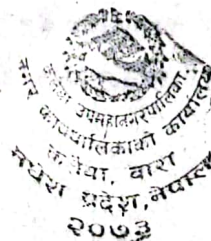 उपमहानगरपालिका
नगर कार्यपालिकाको कार्यालय
कलैया, बारा
मधेश प्रदेश, नेपाल
२०७३